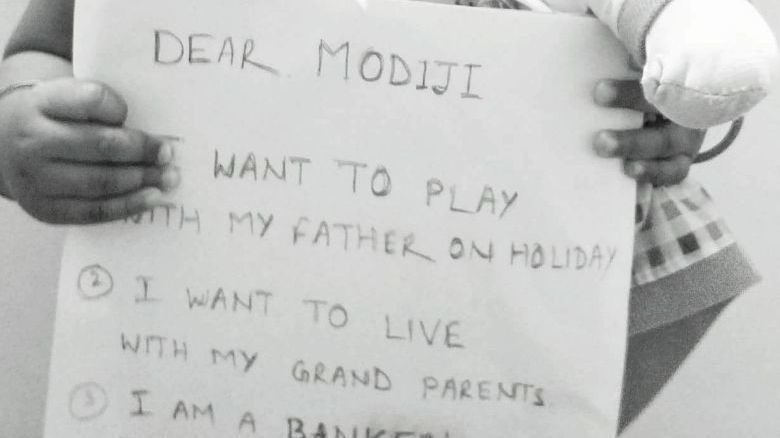 DEAR MODIJI
I WANT TO PLAY
WITH MY FATHER ON HOLIDAY
② I WANT TO LIVE
WITH MY GRAND PARENTS
③ I AM A